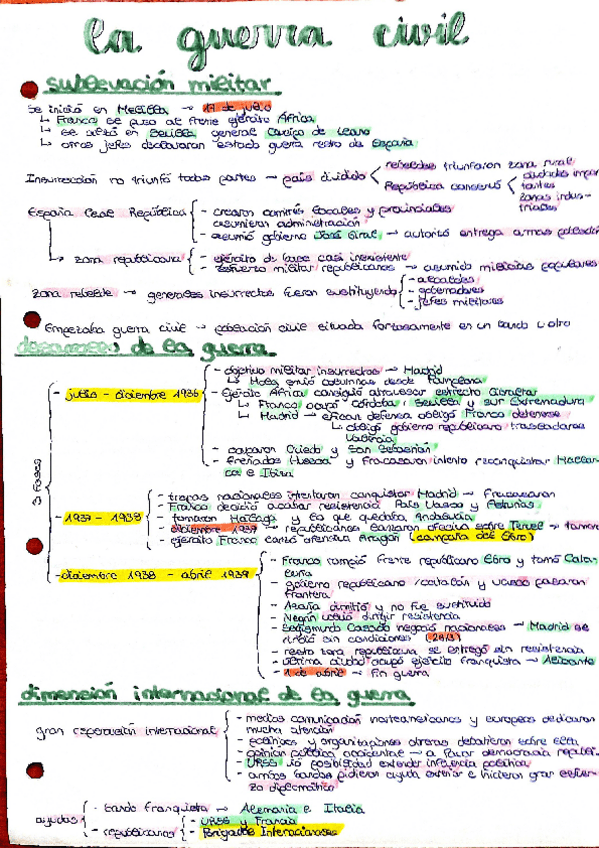 la guerra civil
sublevación militar
Se inició en Melilla → 17 de julio
↳ Franco se puso al frente ejército África
↳ se alzó en Sevilla general Queipo de Llano
↳ otros jefes declararon estado guerra resto de España
rebeldes triunfaron zona rural
Insurrección no triunfó todas partes → país dividido
República conservó ciudades impor
tantes
zonas indus-
triales
España leal República - crearon comités locales y provinciales
asumieron administración
- asumió gobierno José Giral → autorizó entrega armas población
↳ zona republicana - ejército de base casi inexistente
- esfuerzo militar republicanos → asumido milicias populares
zona rebelde → generales insurrectos fueron sustituyendo - alcaldes
- gobernadores
- jefes militares
Empezaba guerra civil → población civil situada forzosamente en un bando u otro
desarrollo de la guerra
3 fases
- julio - diciembre 1936
- objetivo militar insurrectos → Madrid
↳ Mola envió columnas desde Pamplona
- Ejército África consiguió atravesar estrecho Gibraltar
↳ Franco ocupó Córdoba, Sevilla y sur Extremadura
↳ Madrid → eficaz defensa obligó Franco detenerse
↳ obligó gobierno republicano trasladarse
Valencia
- ocuparon Oviedo y San Sebastián
- frenados Huesca y fracasaron intento reconquistar Mallor
ca e Ibiza
- 1937 - 1938
- tropas nacionales intentaron conquistar Madrid → Fracasaron
- Franco decidió acabar resistencia País Vasco y Asturias
- tomaron Málaga y lo que quedaba Andalucía
- diciembre 1937 → republicanos lanzaron ofensiva sobre Teruel →
- ejército Franco lanzó ofensiva Aragón (campaña del Ebro)
- diciembre 1938 - abril 1939
- Franco rompió frente republicano Ebro y tomó Cata
luña
- gobierno republicano catalán y vasco pasaron
frontera
- Azaña dimitió y no fue sustituido
- Negrín volvió dirigir resistencia
- Segismundo Casado negoció nacionales → Madrid se
rindió sin condiciones (28/3)
- resto zona republicana se entregó sin resistencia
- última ciudad ocupó ejército franquista → Alicante
- 1 de abril → fin guerra
dimensión internacional de la guerra
gran repercusión internacional
- medios comunicación norteamericanos y europeos dedicaron
mucha atención
- políticos y organizaciones obreras debatieron sobre ella
- opinión pública occidental → a favor democracia republi.
- URSS vio posibilidad extender influencia política
- ambos bandos pidieron ayuda exterior e hicieron gran esfuer
zo diplomático
ayudas
- bando franquista → Alemania e Italia
- republicanos - URSS y Francia
- Brigadas Internacionales